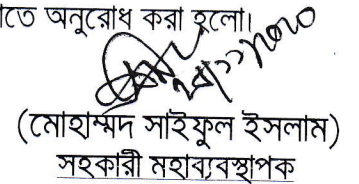 াতে অনুরোধ করা হলো।
(মোহাম্মদ সাইফুল ইসলাম)
সহকারী মহাব্যবস্থাপক